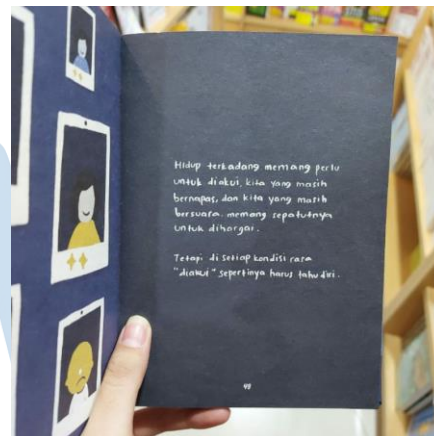 Hidup terkadang memang perlu
untuk diakui, kita yang masih
bernapas, dan kita yang masih
bersuara. memang sepatutnya
untuk dihargai.
Tetapi di setiap kondisi rasa
"diakui" sepertinya harus tahu diri.
48